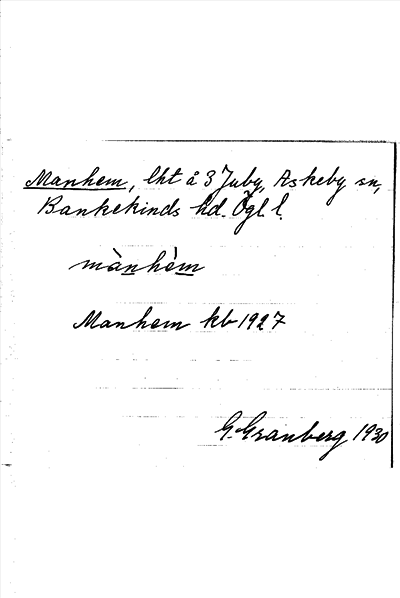 Manhem, lht å 3 Juby, Askeby sn,
Bankekinds hd. Ögl l.
mànhèm
Manhem kb 1927
G. Granberg 1930